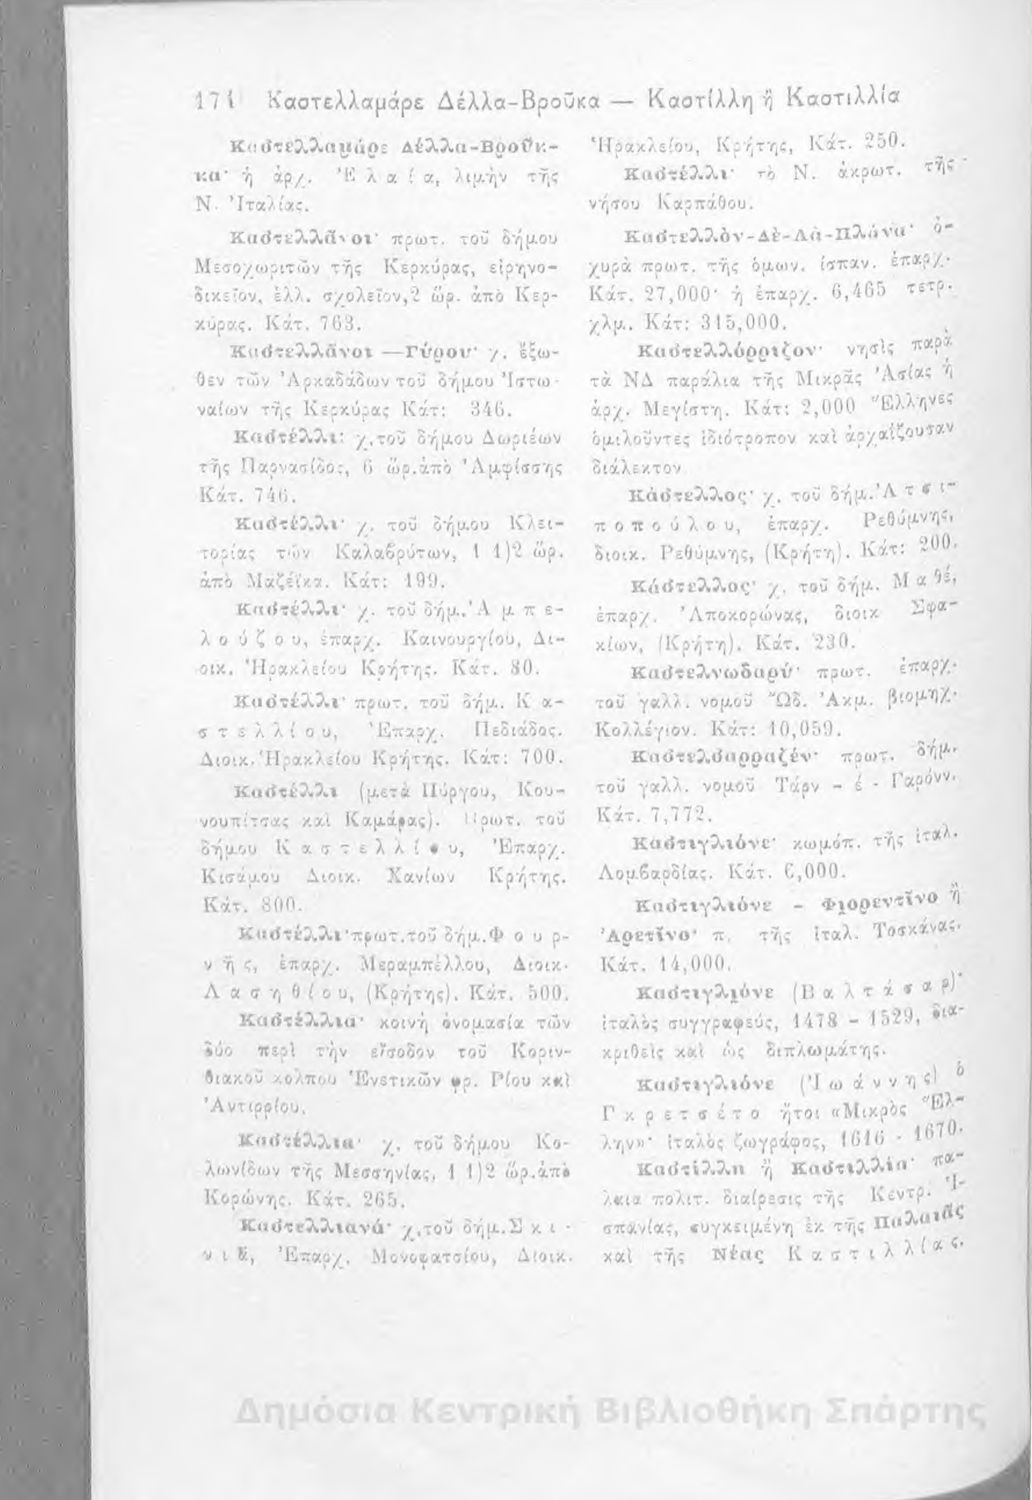 174 Καστελλαμάρε Δέλλα-Βροῦκα — Καστίλλη ἢ Καστιλλία
Καστελλαμάρε Δέλλα-Βροῦκ-
κα· ἡ ἀρχ. Ἐλαία, λιμὴν τῆς
Ν. Ἰταλίας.
Καστελλᾶνοι· πρωτ. τοῦ δήμου
Μεσοχωριτῶν τῆς Κερκύρας, εἰρηνο-
δικεῖον, ἑλλ. σχολεῖον, 2 ὥρ. ἀπὸ Κερ-
κύρας. Κάτ. 763.
Καστελλᾶνοι — Γύρου· χ. ἔξω-
θεν τῶν Ἀρκαδάδων τοῦ δήμου Ἰστω-
ναίων τῆς Κερκύρας Κάτ: 346.
Καστέλλι: χ. τοῦ δήμου Δωριέων
τῆς Παρνασίδος, 6 ὥρ. ἀπὸ Ἀμφίσσης
Κάτ. 746.
Καστέλλι· χ. τοῦ δήμου Κλει-
τορίας τῶν Καλαβρύτων, 1 1)2 ὥρ.
ἀπὸ Μαζέϊκα. Κάτ: 199.
Καστέλλι· χ. τοῦ δήμ. Ἀμπε-
λούζου, ἐπαρχ. Καινουργίου, Δι-
οικ. Ἡρακλείου Κρήτης. Κάτ. 80.
Καστέλλι· πρωτ. τοῦ δήμ. Κα-
στελλίου, Ἐπαρχ. Πεδιάδος.
Διοικ. Ἡρακλείου Κρήτης. Κάτ: 700.
Καστέλλι (μετὰ Πύργου, Κου-
νουπίτσας καὶ Καμάρας). Πρωτ. τοῦ
δήμου Καστελλίου, Ἐπαρχ.
Κισάμου Διοικ. Χανίων Κρήτης.
Κάτ. 800.
Καστέλλι· πρωτ. τοῦ δήμ. Φουρ-
νῆς, ἐπαρχ. Μεραμπέλλου, Διοικ.
Λασηθίου, (Κρήτης). Κάτ. 500.
Καστέλλια· κοινὴ ὀνομασία τῶν
δύο περὶ τὴν εἴσοδον τοῦ Κοριν-
θιακοῦ κόλπου Ἐνετικῶν φρ. Ρίου καὶ
Ἀντιρρίου.
Καστέλλια· χ. τοῦ δήμου Κο-
λωνίδων τῆς Μεσσηνίας, 1 1)2 ὥρ. ἀπὸ
Κορώνης. Κάτ. 265.
Καστελλιανά· χ. τοῦ δήμ. Σκι-
νιᾶ, Ἐπαρχ. Μονοφατσίου, Διοικ.
Ἡρακλείου, Κρήτης, Κάτ. 250.
Καστέλλι· τὸ Ν. ἀκρωτ. τῆς
νήσου Καρπάθου.
Καστελλὸν-Δὲ-Λὰ-Πλάνα· ὀ-
χυρὰ πρωτ. τῆς ὁμων. ἱσπαν. ἐπαρχ.
Κάτ. 27,000· ἡ ἐπαρχ. 6,465 τετρ.
χλμ. Κάτ: 315,000.
Καστελλόρριζον· νησὶς παρὰ
τὰ ΝΔ παράλια τῆς Μικρᾶς Ἀσίας ἡ
ἀρχ. Μεγίστη. Κάτ: 2,000 Ἕλληνες
ὁμιλοῦντες ἰδιότροπον καὶ ἀρχαΐζουσαν
διάλεκτον
Κάστελλος· χ. τοῦ δήμ. Ἀτσι-
ποπούλου, ἐπαρχ. Ρεθύμνης,
διοικ. Ρεθύμνης, (Κρήτη). Κάτ: 200.
Κάστελλος· χ. τοῦ δήμ. Μαθέ,
ἐπαρχ. Ἀποκορώνας, διοικ Σφα-
κίων, (Κρήτη). Κάτ. 230.
Καστελνωδαρύ· πρωτ. ἐπαρχ.
τοῦ γαλλ. νομοῦ Ὢδ. Ἀκμ. βιομηχ.
Κολλέγιον. Κάτ: 10,059.
Καστελσαρραζέν· πρωτ. δήμ.
τοῦ γαλλ. νομοῦ Τάρν - ἐ - Γαρόνν.
Κάτ. 7,772.
Καστιγλιόνε· κωμόπ. τῆς ἰταλ.
Λομβαρδίας. Κάτ. 6,000.
Καστιγλιόνε - Φιορεντῖνο ἢ
Ἀρετῖνο· π. τῆς ἰταλ. Τοσκάνας.
Κάτ. 14,000.
Καστιγλιόνε (Βαλτάσαρ)·
ἰταλὸς συγγραφεύς, 1478 - 1529, δια-
κριθεὶς καὶ ὡς διπλωμάτης.
Καστιγλιόνε (Ἰωάννης) ὁ
Γκρετσέτο ἤτοι «Μικρὸς Ἕλ-
λην»· ἰταλὸς ζωγράφος, 1616 - 1670.
Καστίλλη ἢ Καστιλλία· πα-
λαια πολιτ. διαίρεσις τῆς Κεντρ. Ἱ-
σπανίας, συγκειμένη ἐκ τῆς Παλαιᾶς
καὶ τῆς Νέας Καστιλλίας.
Δημόσια Κεντρική Βιβλιοθήκη Σπάρτης